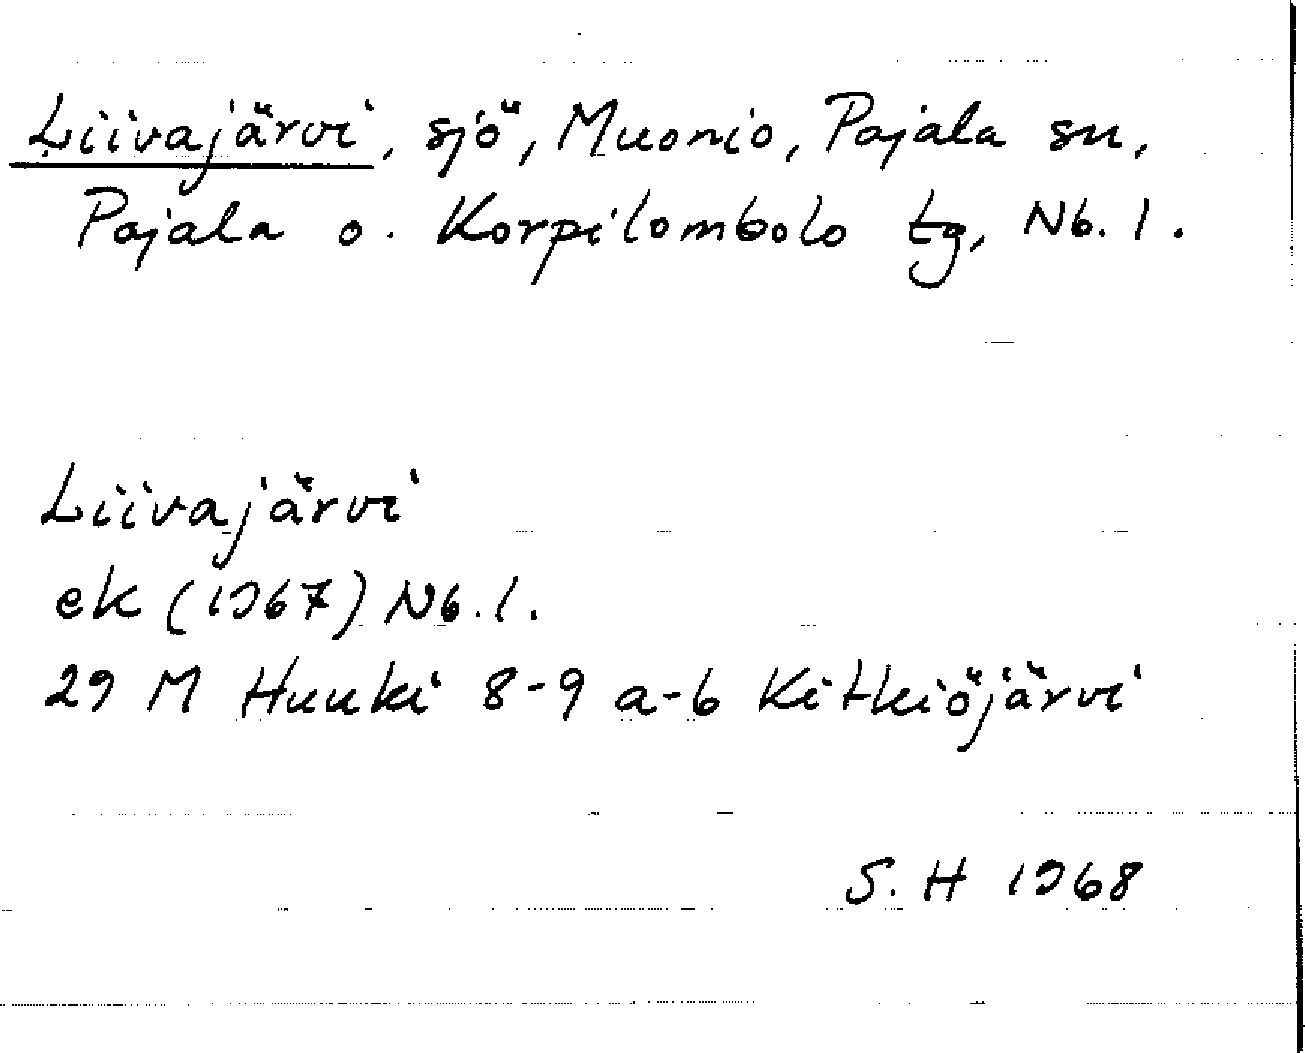 Liivajärvi, sjö, Muonio, Pajala sn,
Pajala o. Korpilombolo tg, Nb. l.
Liivajärvi
ek (1967) Nb. l.
29 M Huuki 8-9 a-b Kitkiöjärvi
S. H 1968